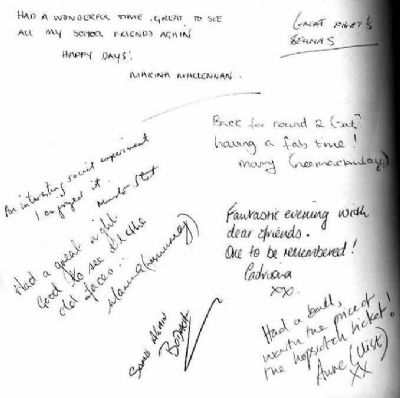 HAD A WONDERFUL TIME. GREAT TO SEE
ALL MY SCHOOL FRIENDS AGAIN
HAPPY DAYS!
MARINA MACLENNAN.
GREAT
Back for round 2 (sat)
having a fab time!
Mary
An interesting social experiment
I enjoyed it.
Fantastic evening with
dear friends.
One to be remembered!
Catriona
xx.
Had a great night
Good to see all the
old faces...
SAME AGAIN
Had a ball,
worth the price of
the hopscotch ticket!
Anne
XX